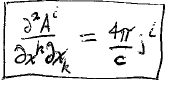 ∂²Aⁱ/∂xᵏ∂xₖ = 4π/c jⁱ